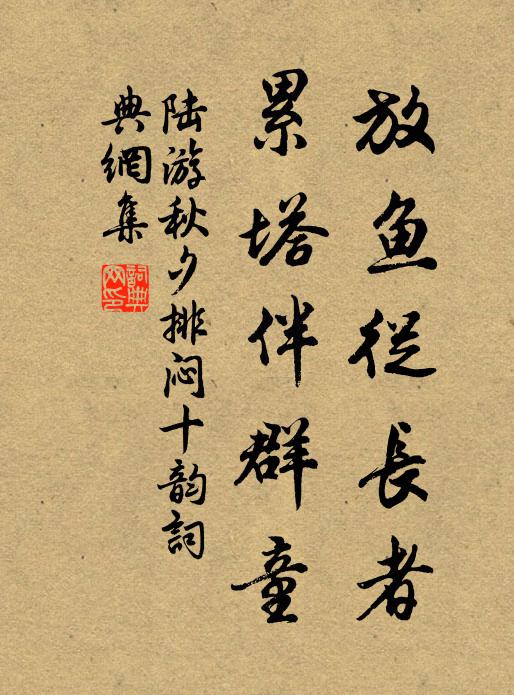 放鱼從長者
累塔伴群童
陆游秋夕排闷十韵詞
典網集
詞典网印